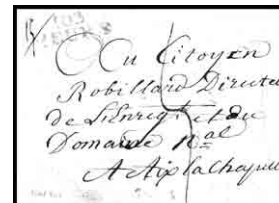 103
Au Citoyen
Robillard Directe
de L'Enregt et du
Domaine Nal
A Aix la Chapelle